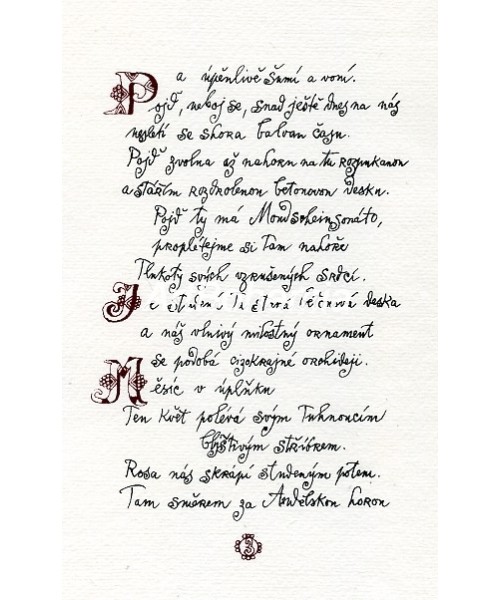 a úpěnlivě šumí a voní.
Pojď, neboj se, snad ještě dnes na nás
nesletí se shora balvan času.
Pojď zvolna až nahoru na tu rozpukanou
a stářím rozdrobenou betonovou desku.
Pojď ty má Mondscheinsonáto,
proplétejme si tam nahoře
tlukoty svých vzrušených srdcí.
Je deska
a náš vlnivý milostný ornament
se podobá cizokrajné orchideji.
Měsíc v úplňku
Ten květ polévá svým tuhnoucím
blyštivým stříbrem.
Rosa nás skrápí studeným potem.
Tam směrem za Andělskou horou
3